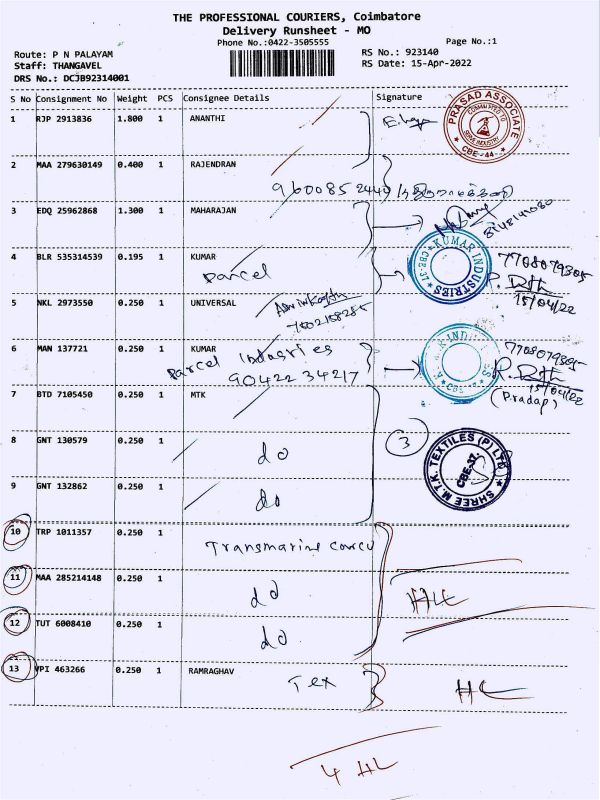 THE PROFESSIONAL COURIERS, Coimbatore
Delivery Runsheet - MO
Phone No.:0422-3505555
Page No.:1
Route: P N PALAYAM
RS No.: 923140
Staff: THANGAVEL
RS Date: 15-Apr-2022
DRS No.: DCJB92314001
S No Consignment No Weight PCS Consignee Details Signature
1 RJP 2913836 1.800 1 ANANTHI
PRASAD ASSOCIATE
COMMITTED TO
SERVE INDUSTRY
CBE-44
2 MAA 279630149 0.400 1 RAJENDRAN
9600852440
3 EDQ 25962868 1.300 1 MAHARAJAN
4 BLR 535314539 0.195 1 KUMAR
Parcel
KUMAR INDUSTRIES
CBE-37
7708079305
15/04/22
5 NKL 2973550 0.250 1 UNIVERSAL
6 MAN 137721 0.250 1 KUMAR
Parcel Industries
9042234217
7708079305
15/04/22
(Pradap)
7 BTD 7105450 0.250 1 MTK
8 GNT 130579 0.250 1
do
3
SHREE M.T.K. TEXTILES (P) LTD
CBE-37.
9 GNT 132862 0.250 1
do
10 TRP 1011357 0.250 1
Transmarine
11 MAA 285214148 0.250 1
do
HL
12 TUT 6008410 0.250 1
do
13 VPI 463266 0.250 1 RAMRAGHAV
Tex
HL
4 HL